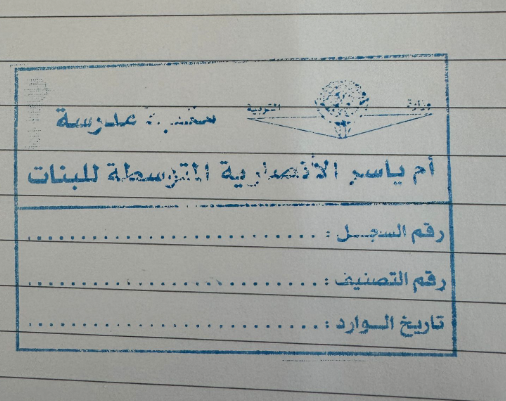 وزارة التربية
مكتبة مدرسة
أم ياسر الأنصارية المتوسطة للبنات
رقم السجل : ........................
رقم التصنيف : ........................
تاريخ الوارد : ........................